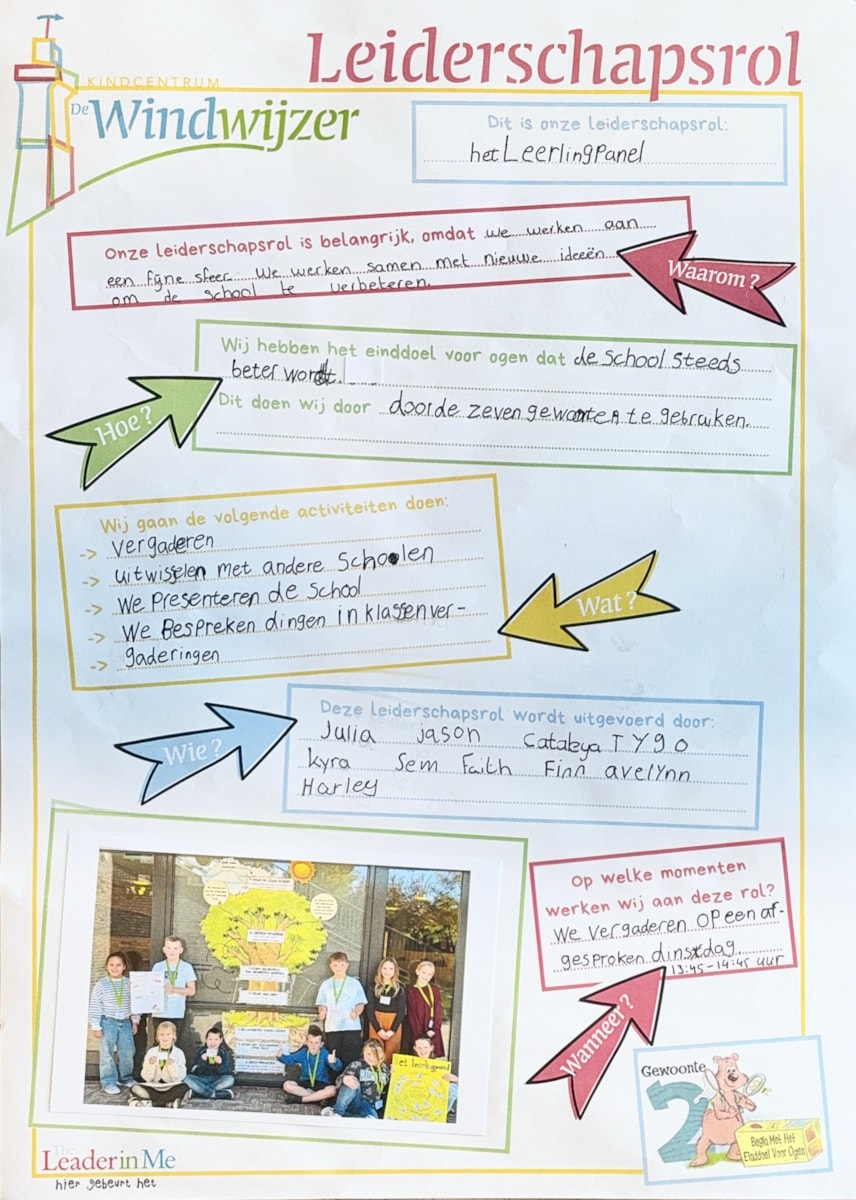 Leiderschapsrol
KINDCENTRUM
De Windwijzer
Dit is onze leiderschapsrol:
het Leerlingpanel
Onze leiderschapsrol is belangrijk, omdat we werken aan
een fijne sfeer. We werken samen met nieuwe ideeën
om de school te verbeteren.
Waarom?
Wij hebben het einddoel voor ogen dat de school steeds
beter wordt.
Dit doen wij door doorde zeven gewoonten te gebruiken.
Hoe?
Wij gaan de volgende activiteiten doen:
-> vergaderen
-> uitwisselen met andere Schoolen
-> We Presenteren de School
-> We Bespreken dingen in klassenver-
-> gaderingen
Wat?
Deze leiderschapsrol wordt uitgevoerd door:
Julia jason Cataleya TYgo
kyra Sem Faith Finn avelynn
Harley
Wie?
Op welke momenten
werken wij aan deze rol?
We vergaderen op een af-
gesproken dinsdag.
13:45-14:45 uur
Wanneer?
Gewoonte
2
Begin Met Het
Einddoel Voor Ogen
The
Leader in Me
hier gebeurt het